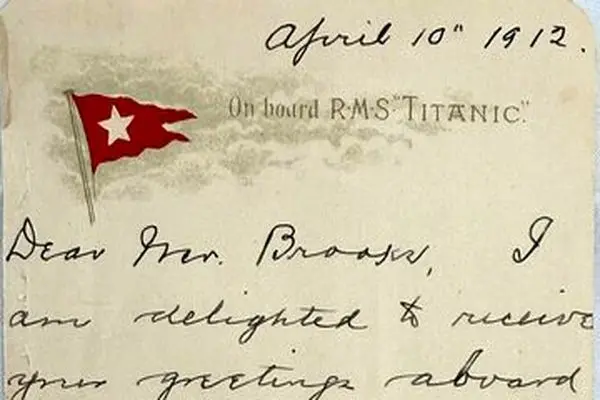 April 10" 1912.
On board R·M·S·"TITANIC."
Dear Mr. Brooks, I
am delighted to receive
your greetings aboard